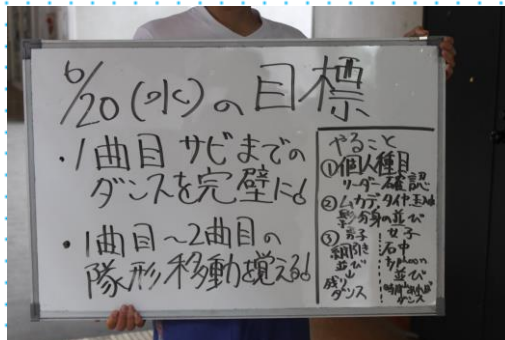 6/20(水)の目標
・1曲目 サビまでの
ダンスを完璧に!
・1曲目〜2曲目の
隊形移動を覚える!
やること
①個人種目
リーダー確認
②ムカデ、タイヤ、玉入れ
影分身の並び
③男子
綱引き
並び
残り
ダンス
女子
石中
typhoon
並び
時間があれば
ダンス